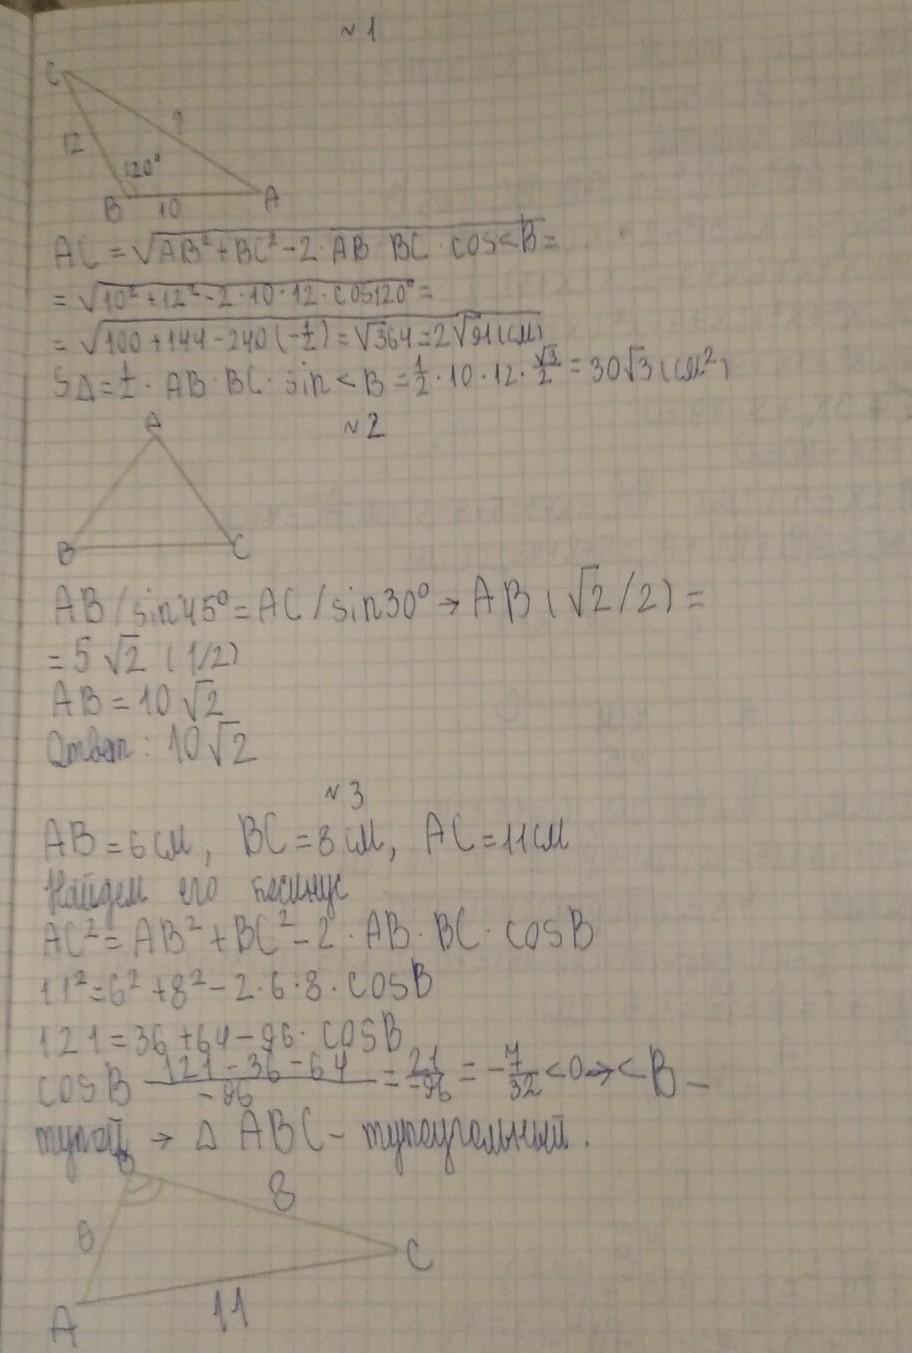 №1
C
?
12
120°
B 10 A
AC = √AB² + BC² - 2 · AB BC · cos<B =
= √10² + 12² - 2 · 10 · 12 · cos120° =
= √100 + 144 - 240 (-1/2) = √364 = 2√91 (см)
S△ = 1/2 · AB · BC · sin<B = 1/2 · 10 · 12 · √3/2 = 30√3 (см²)
№2
A
B C
AB/sin45° = AC/sin30° → AB (√2/2) =
= 5√2 (1/2)
AB = 10√2
Ответ: 10√2
№3
AB = 6 см, BC = 8 см, AC = 11 см
Найдем его косинус
AC² = AB² + BC² - 2 · AB · BC · cosB
11² = 6² + 8² - 2 · 6 · 8 · cosB
121 = 36 + 64 - 96 · cosB
cosB (121 - 36 - 64)/-96 = 21/-96 = -7/32 < 0 → <B -
тупой → △ ABC - тупоугольный.
B
8
6
C
11
A